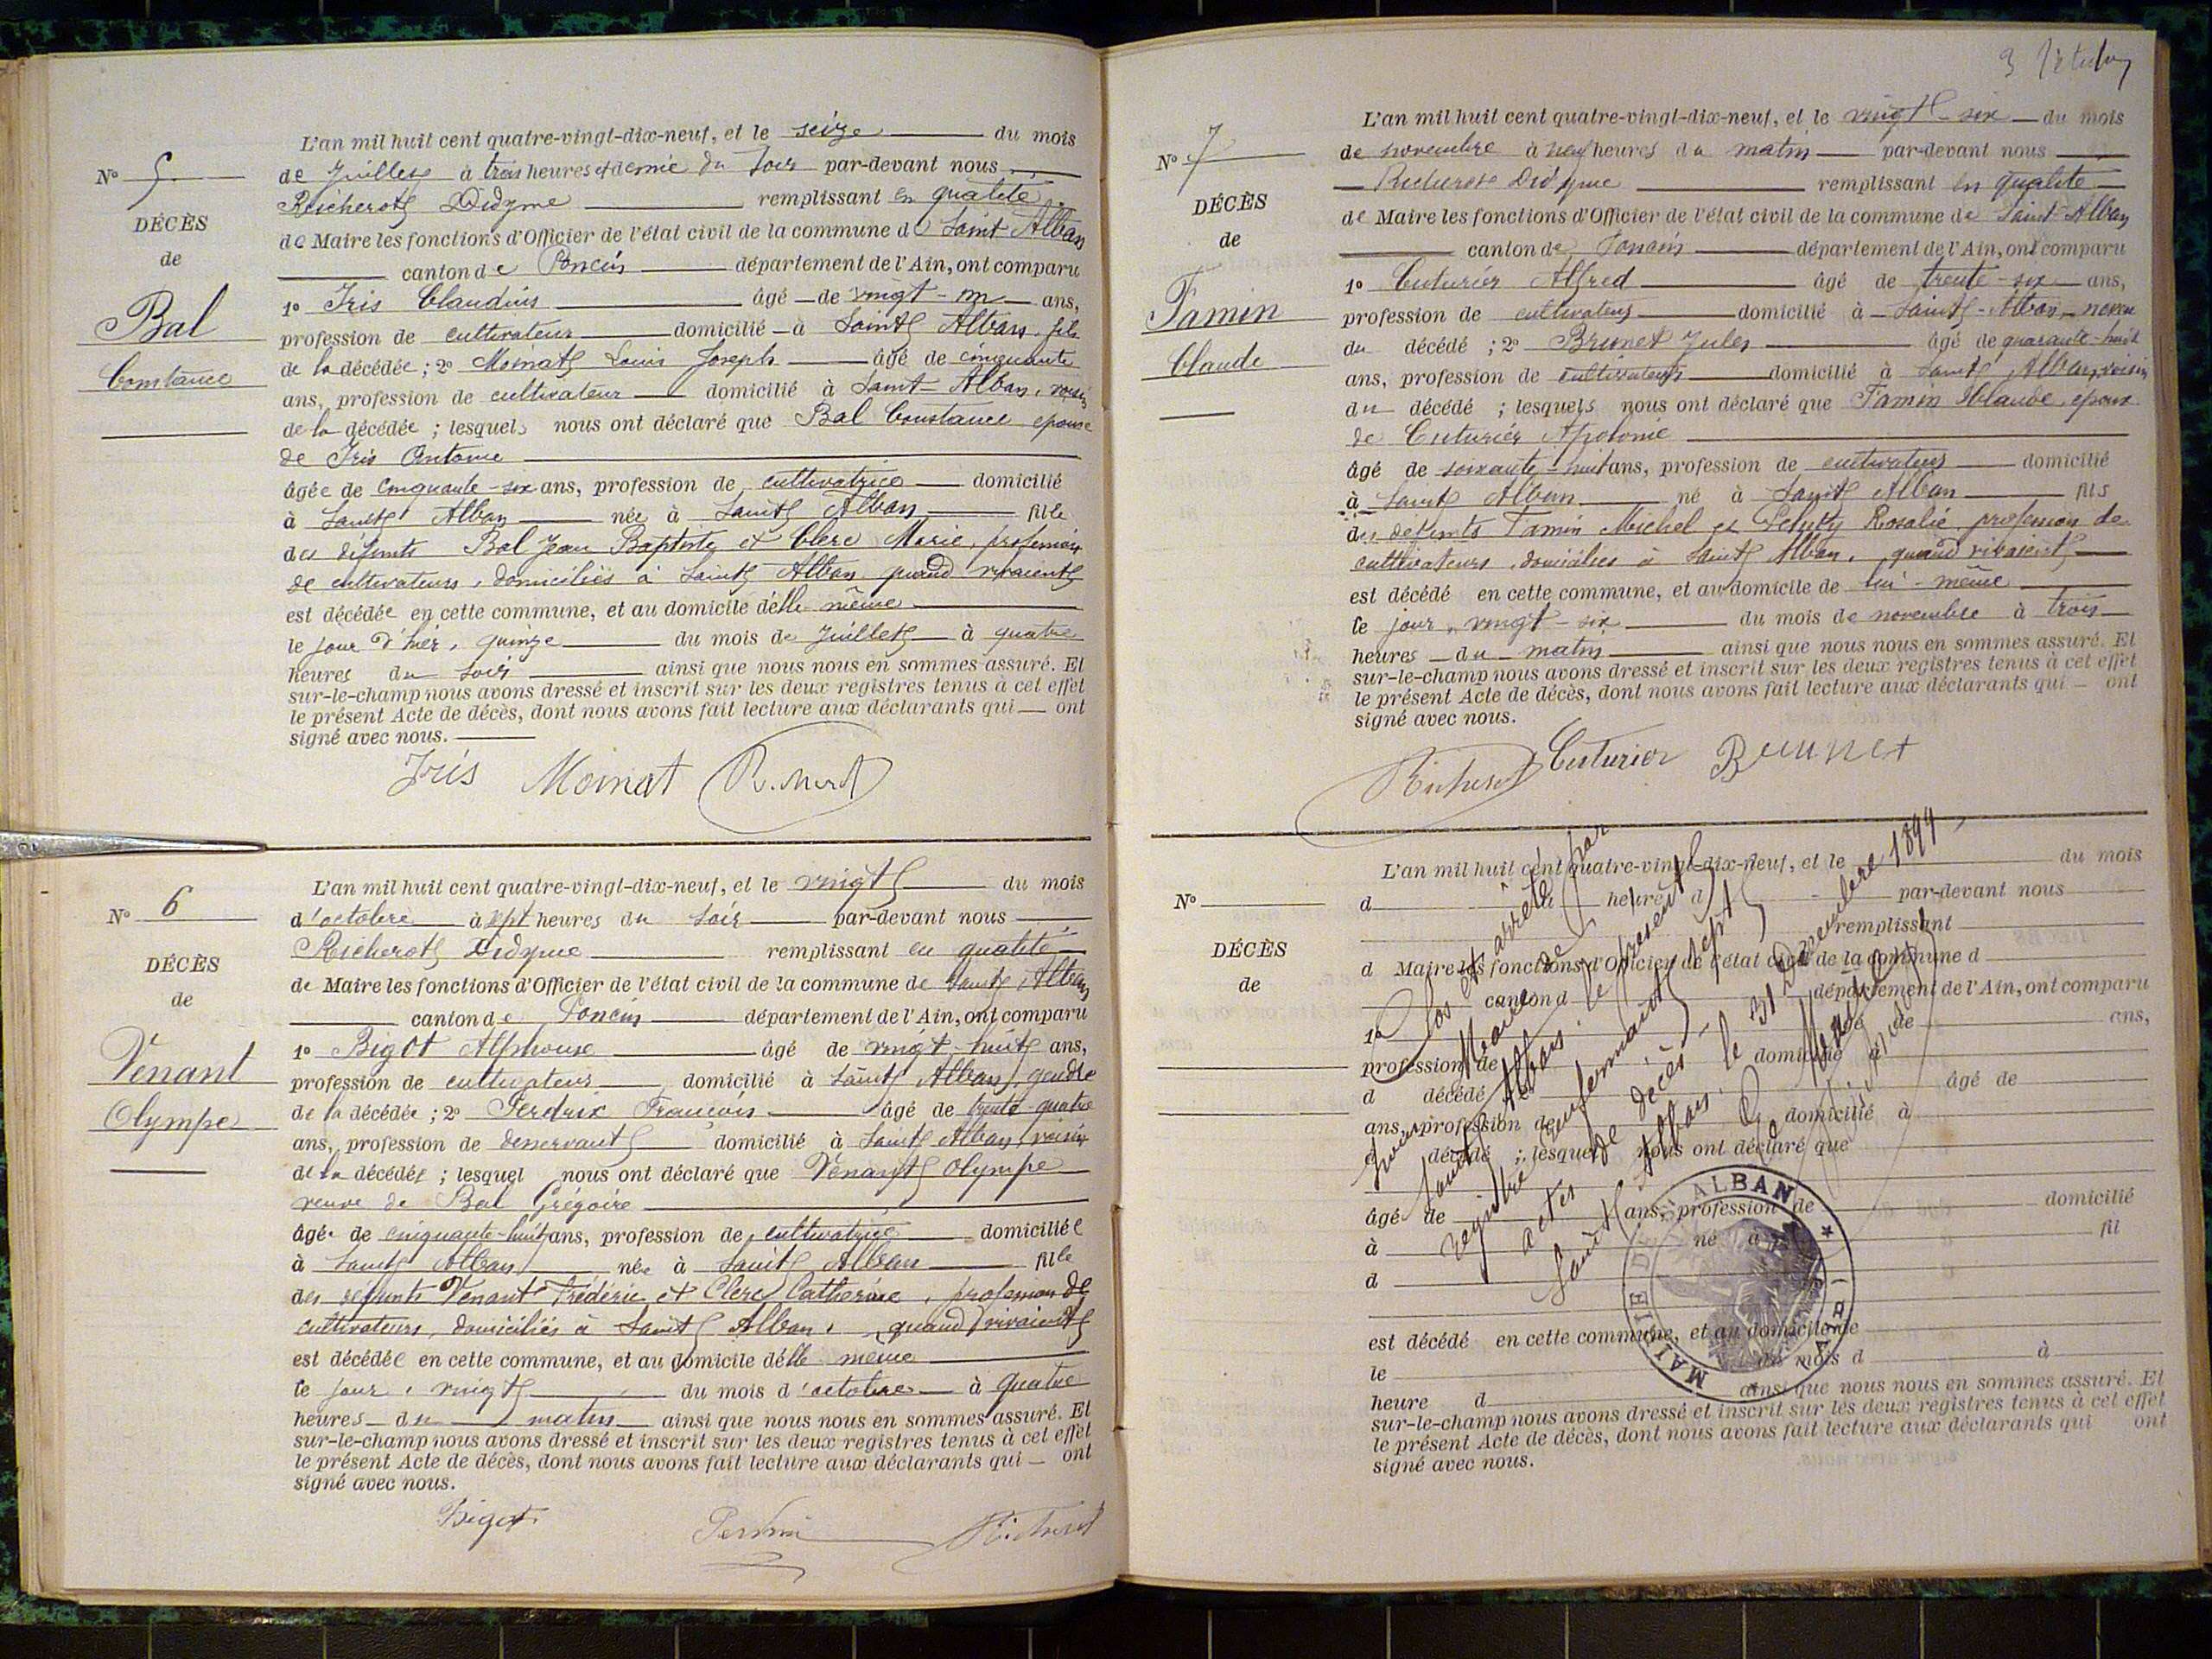 N° 5.
DÉCÈS
de
Bal
Constance
L'an mil huit cent quatre-vingt-dix-neuf, et le seize du mois
de Juillet à trois heures et demie du soir par-devant nous
Richerot Didyme remplissant en qualité
de Maire les fonctions d'Officier de l'état civil de la commune de Saint Alban
canton de Poncin département de l'Ain, ont comparu
1° Iris Claudius âgé de vingt-un ans,
profession de cultivateur domicilié à Saint Alban, fils
de la décédée ; 2° Moinat Louis Joseph âgé de cinquante
ans, profession de cultivateur domicilié à Saint Alban, voisin
de la décédée ; lesquels nous ont déclaré que Bal Constance epouse
de Iris Antoine
âgée de cinquante-six ans, profession de cultivatrice domicilié
à Saint Alban née à Saint Alban fille
des défunts Bal Jean Baptiste et Clerc Marie, profession
de cultivateurs, domiciliés à Saint Alban quand vivaient
est décédée en cette commune, et au domicile d'elle même
le jour d'hier, quinze du mois de Juillet à quatre
heures du soir ainsi que nous nous en sommes assuré. Et
sur-le-champ nous avons dressé et inscrit sur les deux registres tenus à cet effet
le présent Acte de décès, dont nous avons fait lecture aux déclarants qui ont
signé avec nous.
Iris Moinat Richerot
N° 6
DÉCÈS
de
Venant
Olympe
L'an mil huit cent quatre-vingt-dix-neuf, et le vingt du mois
d'octobre à sept heures du soir par-devant nous
Richerot Didyme remplissant en qualité
de Maire les fonctions d'Officier de l'état civil de la commune de Saint Alban
canton de Poncin département de l'Ain, ont comparu
1° Bigot Alphonse âgé de vingt-huit ans,
profession de cultivateur domicilié à Saint Alban, gendre
de la décédée ; 2° Perdrix François âgé de trente-quatre
ans, profession de desservant domicilié à Saint Alban, voisin
de la décédée ; lesquel nous ont déclaré que Venant Olympe
veuve de Bal Grégoire
âgée de cinquante-huit ans, profession de cultivatrice domiciliée
à Saint Alban née à Saint Alban fille
des défunts Venant Frédéric et Clerc Catherine, profession de
cultivateurs, domiciliés à Saint Alban, quand vivaient
est décédée en cette commune, et au domicile d'elle même
le jour, vingt du mois d'octobre à quatre
heures du matin ainsi que nous nous en sommes assuré. Et
sur-le-champ nous avons dressé et inscrit sur les deux registres tenus à cet effet
le présent Acte de décès, dont nous avons fait lecture aux déclarants qui ont
signé avec nous.
Bigot Richerot
3
N° 7
DÉCÈS
de
Famin
Claude
L'an mil huit cent quatre-vingt-dix-neuf, et le vingt-six du mois
de novembre à neuf heures du matin par-devant nous
Richerot Didyme remplissant en qualité
de Maire les fonctions d'Officier de l'état civil de la commune de Saint Alban
canton de Poncin département de l'Ain, ont comparu
1° Cuturier Alfred âgé de trente-six ans,
profession de cultivateur domicilié à Saint-Alban, neveu
du décédé ; 2° Brunet Jules âgé de quarante-huit
ans, profession de cultivateur domicilié à Saint Alban, voisin
du décédé ; lesquels nous ont déclaré que Famin Claude, epoux
de Cuturier Apolonie
âgé de soixante-huit ans, profession de cultivateur domicilié
à Saint Alban né à Saint Alban fils
des défunts Famin Michel et Rosalie, profession de
cultivateurs, domiciliés à Saint Alban, quand vivaient
est décédé en cette commune, et au domicile de lui-même
le jour, vingt-six du mois de novembre à trois
heures du matin ainsi que nous nous en sommes assuré. Et
sur-le-champ nous avons dressé et inscrit sur les deux registres tenus à cet effet
le présent Acte de décès, dont nous avons fait lecture aux déclarants qui ont
signé avec nous.
Richerot Cuturier Brunet
N°
DÉCÈS
de
L'an mil huit cent quatre-vingt-dix-neuf, et le du mois
d à heure d par-devant nous
remplissant
d Maire les fonctions d'Officier de l'état civil de la commune d
canton d département de l'Ain, ont comparu
1° âgé de ans,
profession de domicilié à
d décédé âgé de
ans, profession de domicilié à
d décédé ; lesquel nous ont déclaré que
âgé de ans, profession de domicilié
à né à fil
d
est décédé en cette commune, et au domicile de
le du mois d à
heure d ainsi que nous nous en sommes assuré. Et
sur-le-champ nous avons dressé et inscrit sur les deux registres tenus à cet effet
le présent Acte de décès, dont nous avons fait lecture aux déclarants qui ont
signé avec nous.
Clos et arrêté par
nous Maire de
Saint Alban. le présent
registre renfermant sept
actes de décès. le 31 Décembre 1899
Saint Alban. Le Maire
Richerot
MAIRIE DE ST ALBAN * (AIN) *